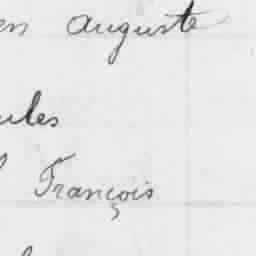 en Auguste
ules
François